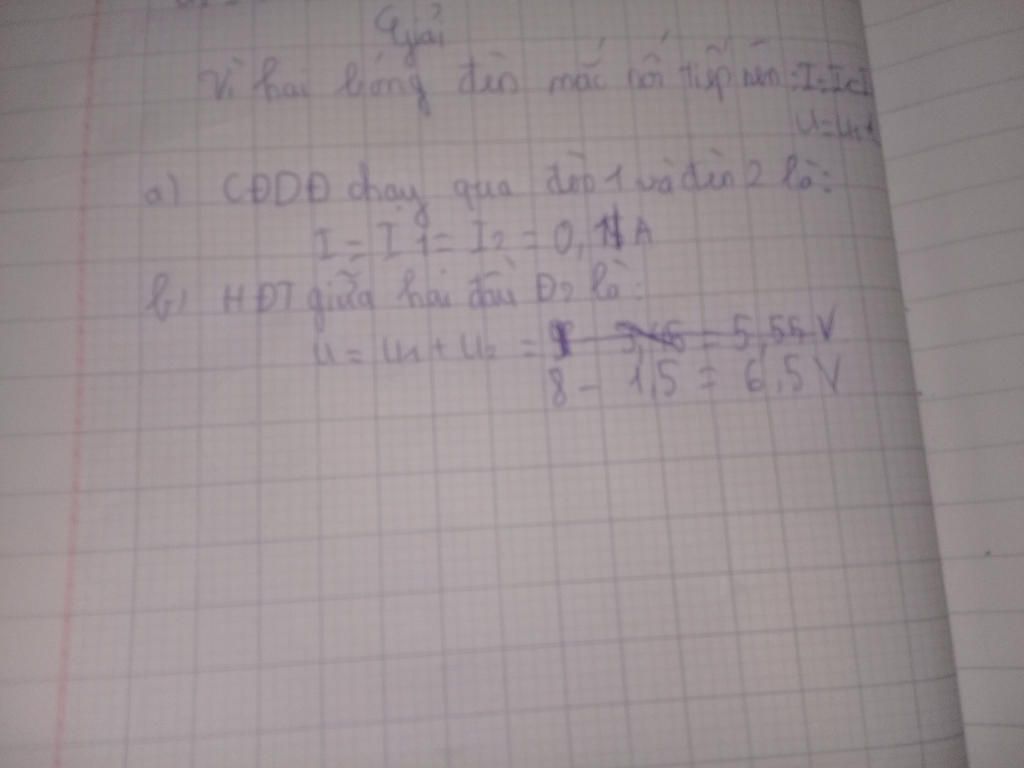 Giải
Vì hai bóng đèn mắc nối tiếp nên: I=I
U=U1+
a) CĐDĐ chạy qua đèn 1 và đèn 2 là:
I = I1 = I2 = 0, A
b) HĐT giữa hai đầu Đ2 là:
U = U1 + U2 = = 5,55 V
8 - 1,5 = 6,5 V